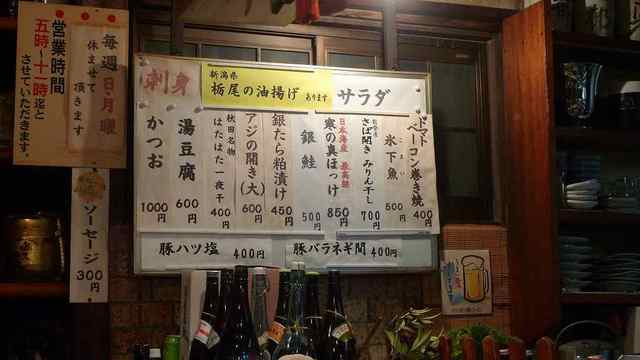 毎週日・月曜
休ませて
頂きます
営業時間
五時〜十一時迄と
させていただきます。
ソーセージ
300円
刺身
新潟県
栃尾の油揚げ あります
サラダ
トマト
ベーコン巻き焼
400円
氷下魚
こまい
500円
さば開き みりん干し
700円
日本海産 最高級
寒の真ほっけ
850円
銀鮭
500円
銀たら粕漬け
450円
アジの開き(大)
600円
秋田名物
はたはた一夜干
400円
湯豆腐
600円
かつお
1000円
豚ハツ塩 400円
豚バラネギ間 400円